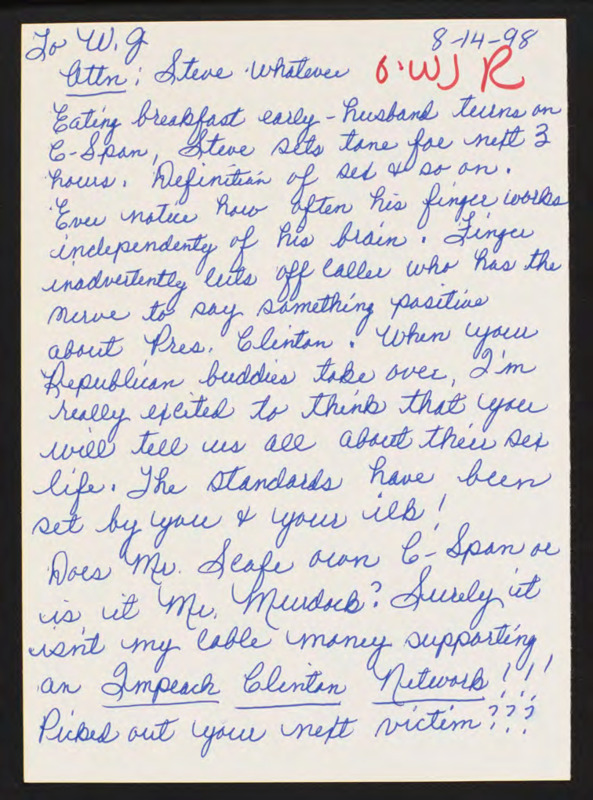 To W. J
8-14-98
Attn: Steve Whatever
6. WJ R
Eating breakfast early - husband turns on
C-Span, Steve sets tone for next 3
hours. Definition of sex & so on.
Ever notice how often his finger works
independenty of his brain. Finger
inadvertently cuts off caller who has the
nerve to say something positive
about Pres. Clinton. When your
Republican buddies take over, I'm
really excited to think that you
will tell us all about their sex
life. The standards have been
set by you & your ilk!
Does Mr. Scafe own C-Span or
is it Mr. Murdock? Surely it
isn't my cable money supporting
an Impeach Clinton Network!!!
Picked out your next victim???